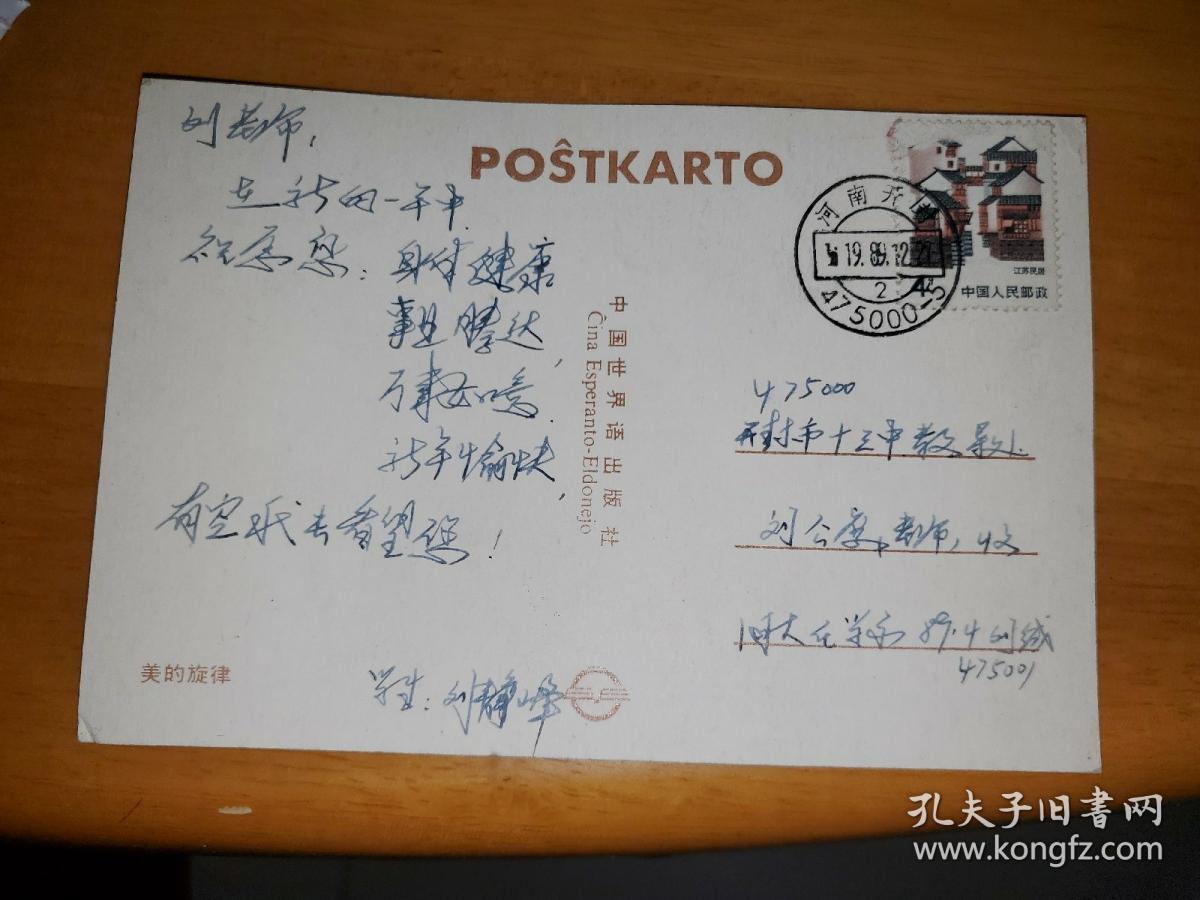 刘老师,
在新的一年中
祝愿您：身体健康
事业腾达,
万事如意.
新年愉快,
有空我去看望您！
学生：刘静峰
美的旋律
中国世界语出版社
Ĉina Esperanto-Eldonejo
POŜTKARTO
河南开封
19.89.12.27
2
475000-5
江苏民居
中国人民邮政
475000
开封市十三中教导处.
刘公 老师, 收
河大化学系 89.4 刘缄
475001
孔夫子旧书网
www.kongfz.com